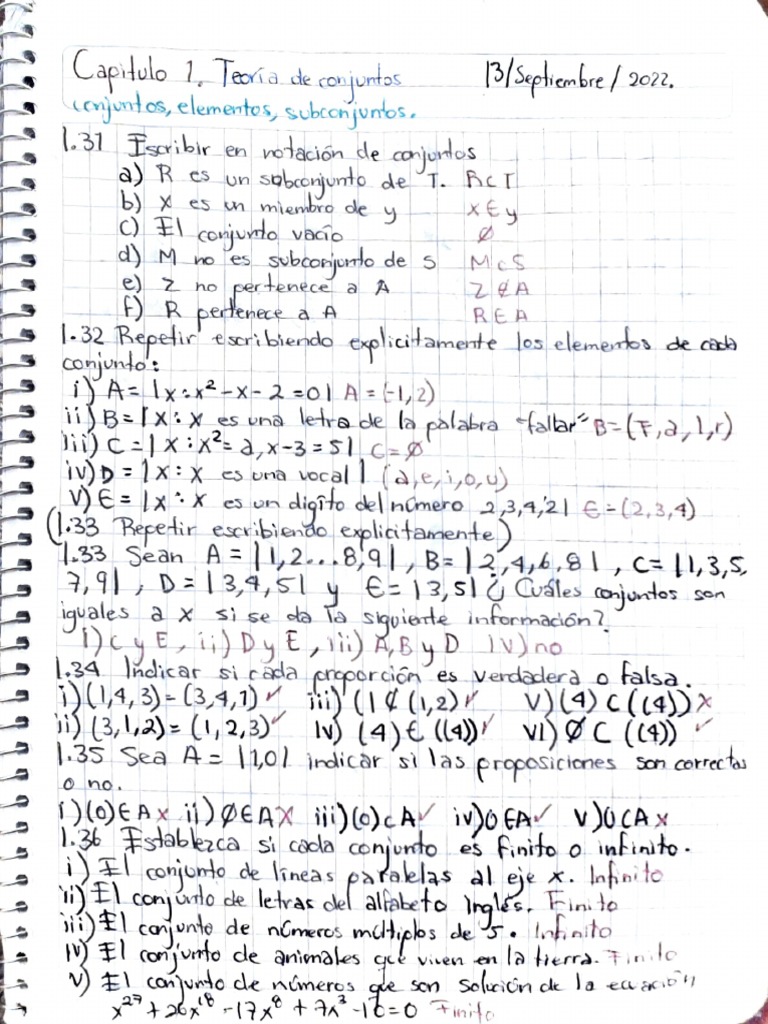 Capitulo 1. Teoría de conjuntos 13/Septiembre/2022.
conjuntos, elementos, subconjuntos.
1.31 Escribir en notación de conjuntos
a) R es un subconjunto de T. R⊂T
b) X es un miembro de y X∈y
c) El conjunto vacío ∅
d) M no es subconjunto de S M⊂S
e) Z no pertenece a A Z∉A
f) R pertenece a A R∈A
1.32 Repetir escribiendo explicitamente los elementos de cada
conjunto:
i) A=|x:x²-x-2=0| A=(-1,2)
ii) B=|x:x es una letra de la palabra "fallar" B=(F,a,l,r)
iii) C=|x:x²=a,x-3=5| C=∅
iv) D=|x:x es una vocal| (a,e,i,o,u)
v) E=|x:x es un digito del número 2,3,4,2| E=(2,3,4)
(1.33 Repetir escribiendo explicitamente)
1.33 Sean A=|1,2...8,9|, B=|2,4,6,8|, C=|1,3,5,
7,9|, D=|3,4,5| y E=|3,5| ¿Cuáles conjuntos son
iguales a x si se da la siguiente información?
i) C y E, ii) D y E, iii) A,B y D IV) no
1.34 Indicar si cada proporción es verdadera o falsa.
i) (1,4,3)=(3,4,1)✓ iii) (1∉(1,2)✓ V) (4)⊂((4))x
ii) (3,1,2)=(1,2,3)✓ IV) (4)∈((4))✓ VI) ∅⊂((4)) ✓
1.35 Sea A=|1,0| indicar si las proposiciones son correctas
o no.
i) (0)∈A x ii) ∅∈A X iii) (0)⊂A✓ iv) 0∈A✓ v) 0⊂A x
1.36 Establezca si cada conjunto es finito o infinito.
i) El conjunto de líneas paralelas al eje x. Infinito
ii) El conjunto de letras del alfabeto Inglés. Finito
iii) El conjunto de números múltiplos de 5. Infinito
IV) El conjunto de animales que viven en la tierra. Finito
V) El conjunto de números que son solución de la ecuación
x²⁷+26x¹⁸-17x⁸+7x³-10=0 Finito